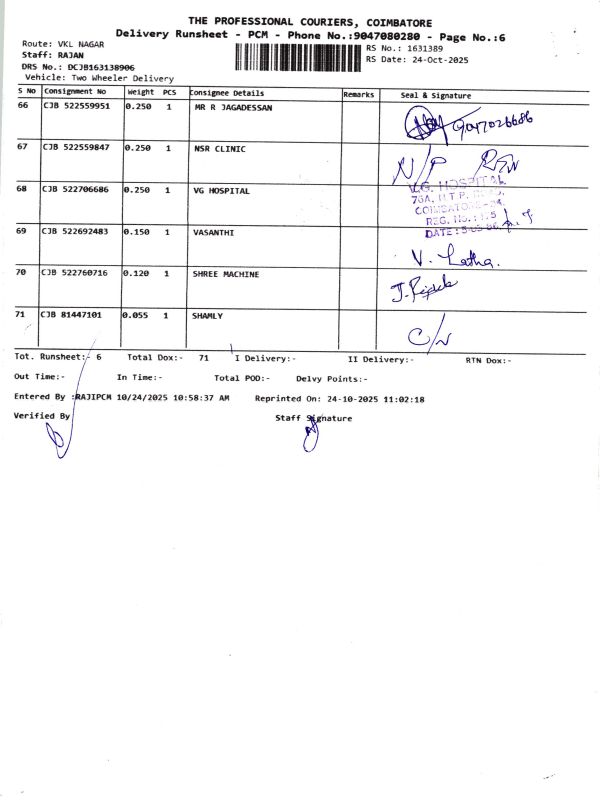 THE PROFESSIONAL COURIERS, COIMBATORE
Delivery Runsheet - PCM - Phone No.:9047080280 - Page No.:6
Route: VKL NAGAR
Staff: RAJAN
DRS No.: DCJB163138906
Vehicle: Two Wheeler Delivery
RS No.: 1631389
RS Date: 24-Oct-2025
S No Consignment No Weight PCS Consignee Details Remarks Seal & Signature
66 CJB 522559951 0.250 1 MR R JAGADESSAN 9047026686
67 CJB 522559847 0.250 1 NSR CLINIC N/P RTN
68 CJB 522706686 0.250 1 VG HOSPITAL
V.G. HOSPITAL
COIMBATORE
REG. NO.
DATE :
69 CJB 522692483 0.150 1 VASANTHI V. Latha.
70 CJB 522760716 0.120 1 SHREE MACHINE
71 CJB 81447101 0.055 1 SHAMLY C/N
Tot. Runsheet:- 6 Total Dox:- 71 I Delivery:- II Delivery:- RTN Dox:-
Out Time:- In Time:- Total POD:- Delvy Points:-
Entered By :RAJIPCM 10/24/2025 10:58:37 AM Reprinted On: 24-10-2025 11:02:18
Verified By Staff Signature